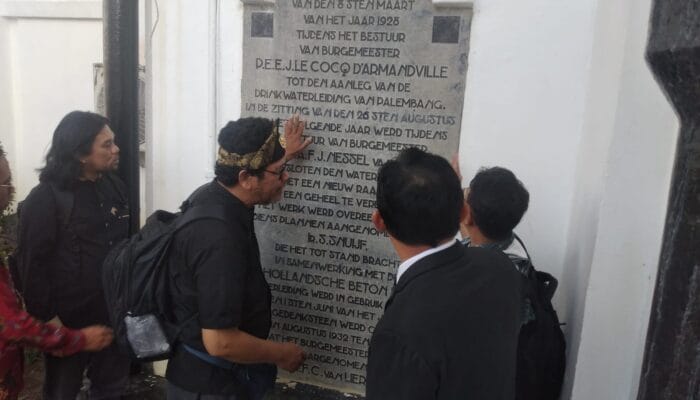 VAN DEN 8 STEN MAART
VAN HET JAAR 1928
TIJDENS HET BESTUUR
VAN BURGEMEESTER
P.E.E.J. LE COCQ D'ARMANDVILLE
TOT DEN AANLEG VAN DE
DRINKWATERLEIDING VAN PALEMBANG.
IN DE ZITTING VAN DEN 26 STEN AUGUSTUS
OLGENDE JAAR WERD TIJDENS
UUR VAN BURGEMEESTER
F.J. NESSEL VA
SLOTEN DEN WATER
EEN NIEUW RAA
EEN GEHEEL TE VER
HET WERK WERD OVEREE
DIENS PLANNEN AANGENOME
IR. S. SNUIJF.
DIE HET TOT STAND BRACH
IN SAMENWERKING MET D
HOLLANDSCHE BETON
LEIDING WERD IN GEBRUIK
1 STEN JUNI VAN HET J
GEDENKSTEEN WERD
AUGUSTUS 1932 TE
AT HET BURGEMEESTER
AARGENOMEN
F.C. VAN LIER